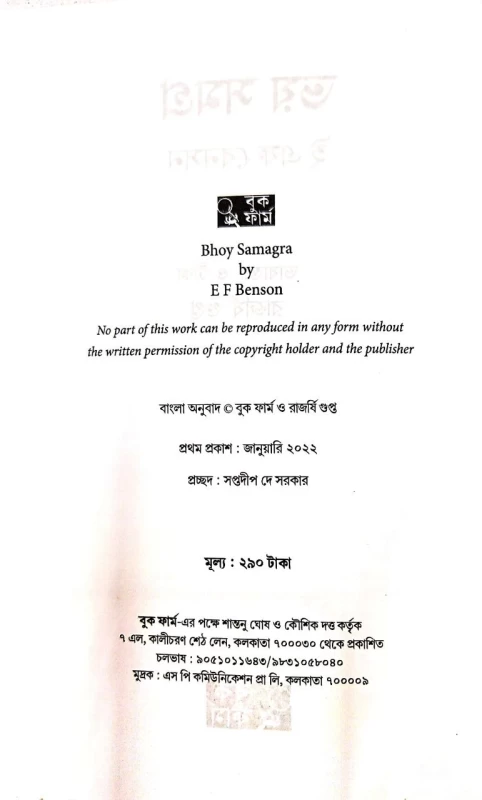 বুক
ফার্ম
Bhoy Samagra
by
E F Benson
No part of this work can be reproduced in any form without
the written permission of the copyright holder and the publisher
বাংলা অনুবাদ © বুক ফার্ম ও রাজর্ষি গুপ্ত
প্রথম প্রকাশ : জানুয়ারি ২০২২
প্রচ্ছদ : সপ্তদীপ দে সরকার
মূল্য : ২৯০ টাকা
বুক ফার্ম-এর পক্ষে শান্তনু ঘোষ ও কৌশিক দত্ত কর্তৃক
৭ এল, কালীচরণ শেঠ লেন, কলকাতা ৭০০০৩০ থেকে প্রকাশিত
চলভাষ : ৯০৫১০১১৬৪৩/৯৮৩১০৫৮০৪০
মুদ্রক : এস পি কমিউনিকেশন প্রা লি, কলকাতা ৭০০০০৯